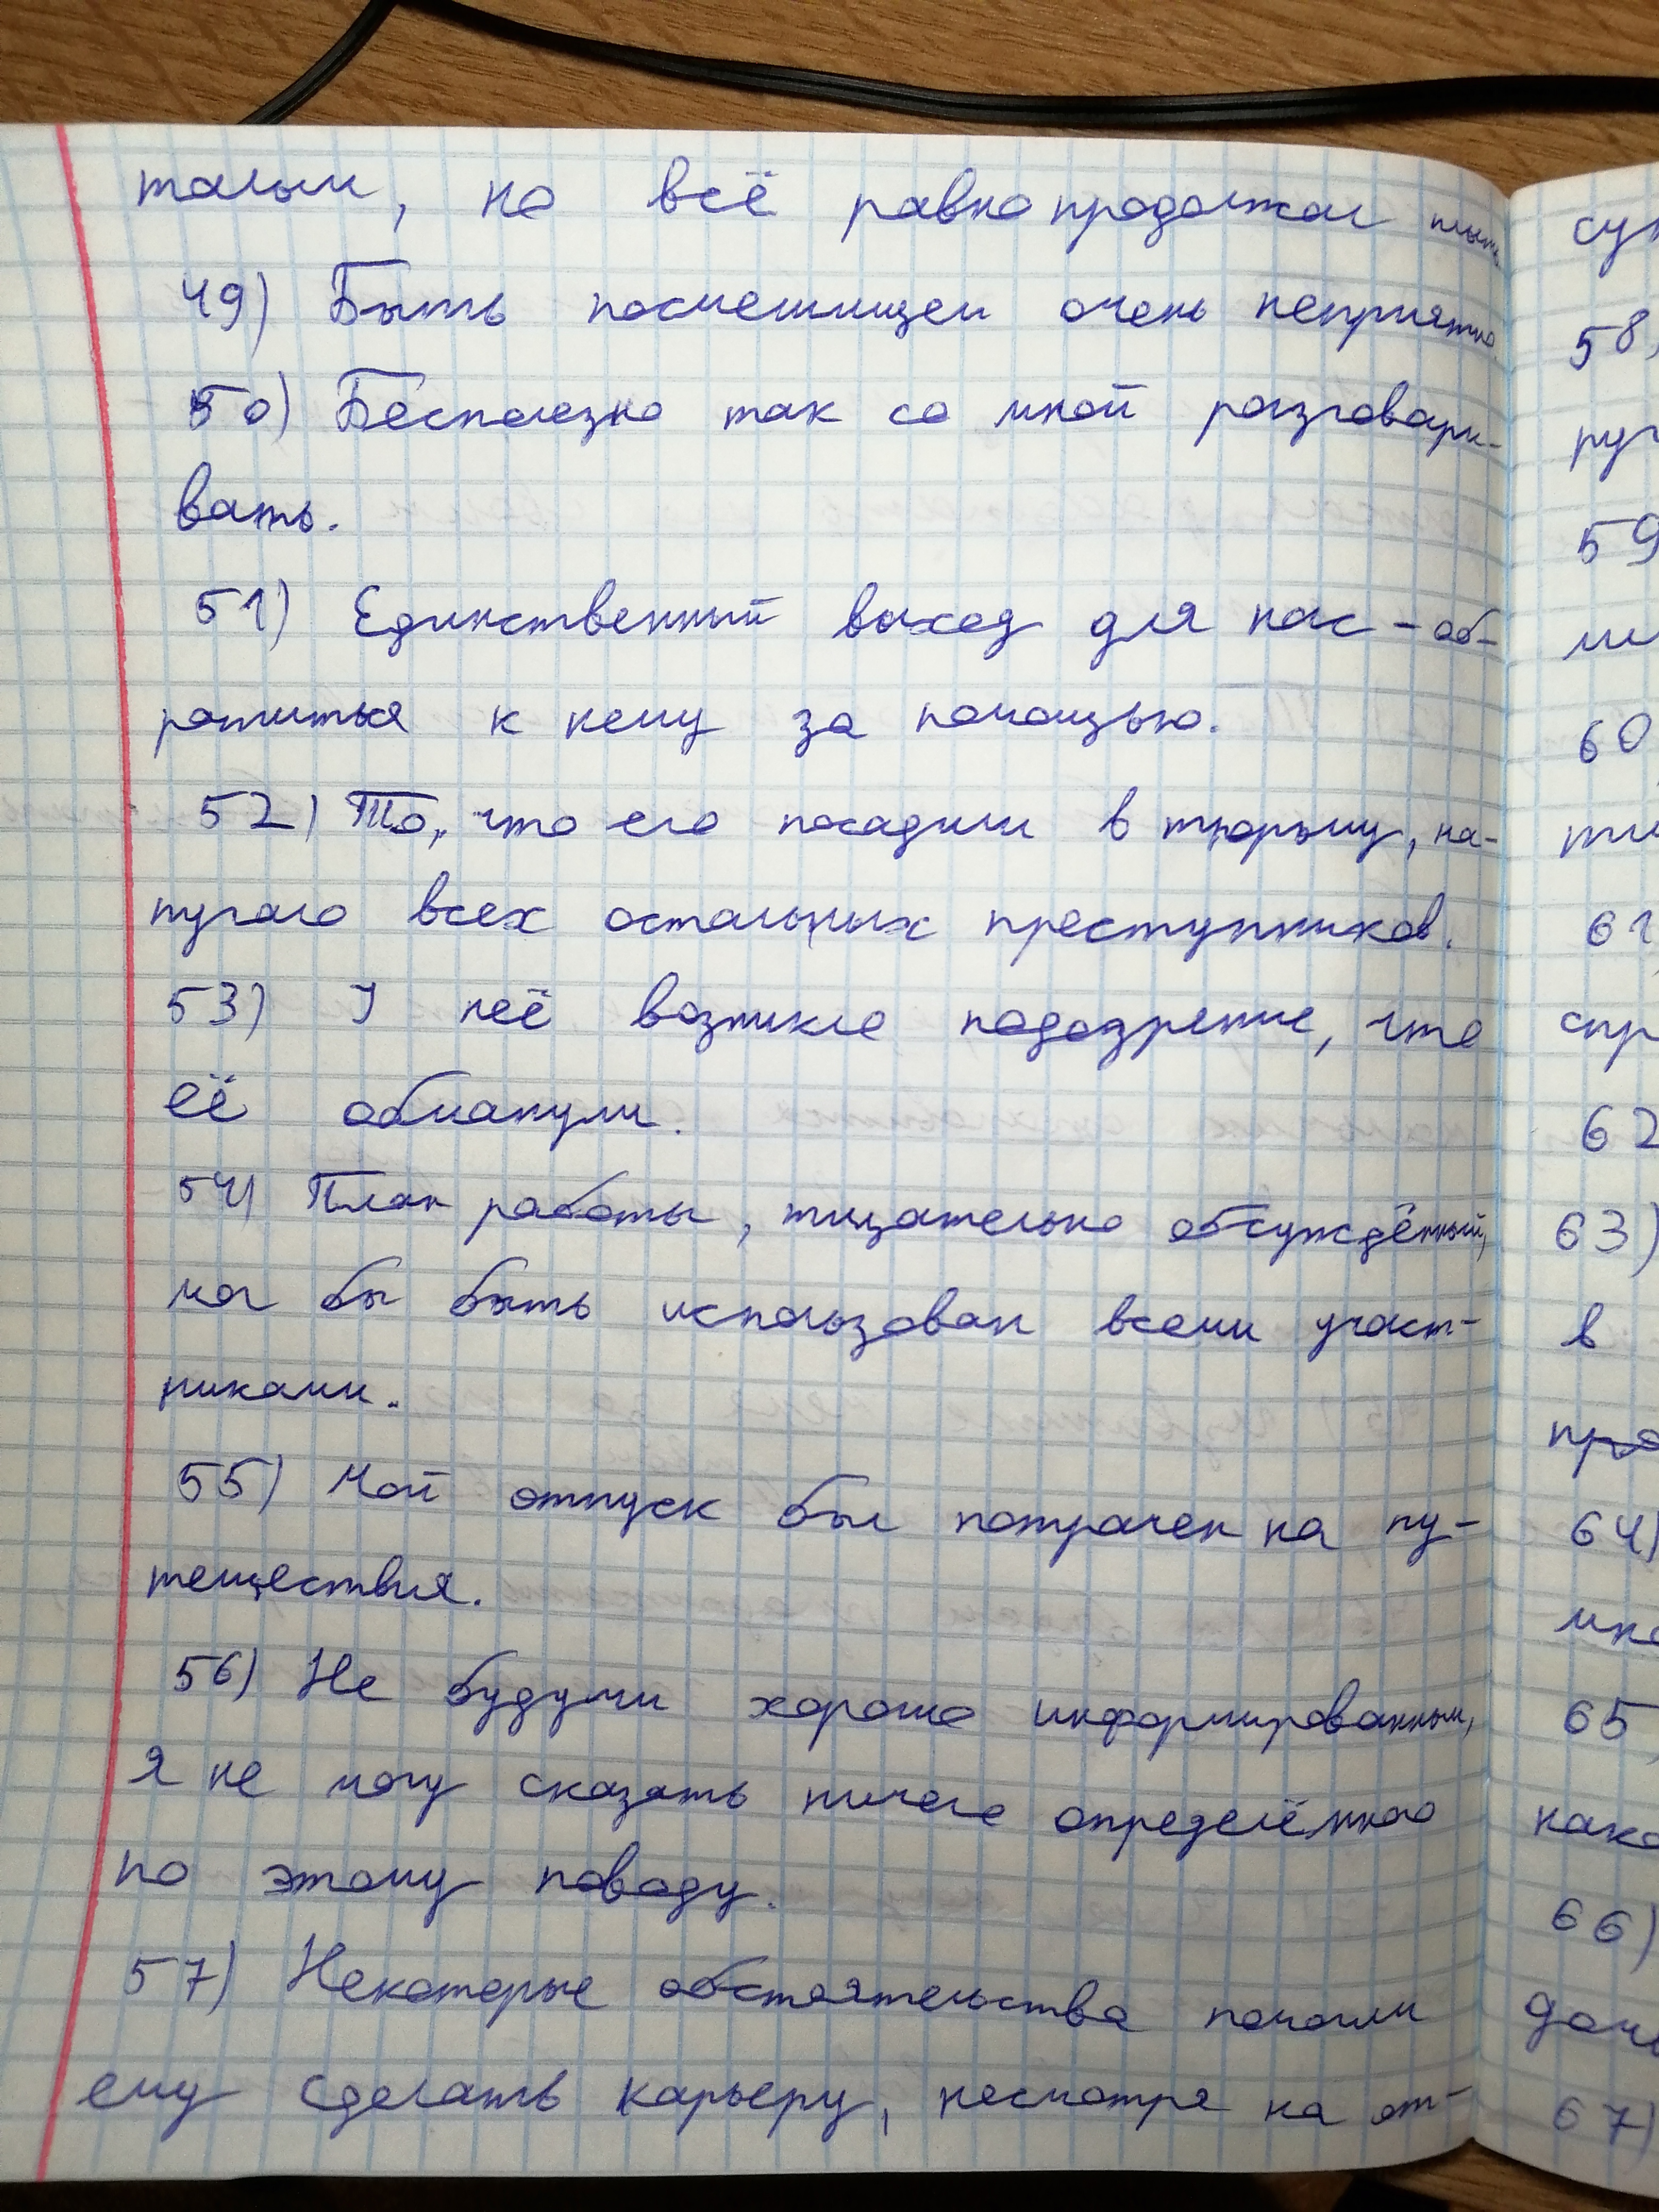 талым, но всё равно продолжал плыть
49) Быть посмешищем очень неприятно.
50) Бесполезно так со мной разговари-
вать.
51) Единственный выход для нас - об-
ратиться к нему за помощью.
52) То, что его посадили в тюрьму, на-
пугало всех остальных преступников.
53) У неё возникло подозрение, что
её обманули.
54) План работы, тщательно обсуждённый,
мог бы быть использован всеми участ-
никами.
55) Мой отпуск был потрачен на пу-
тешествия.
56) Не будучи хорошо информированным,
я не могу сказать ничего определённого
по этому поводу.
57) Некоторые обстоятельства помогли
ему сделать карьеру, несмотря на от-
58)
59
60
61
62
63)
в
64)
65
66)
67)